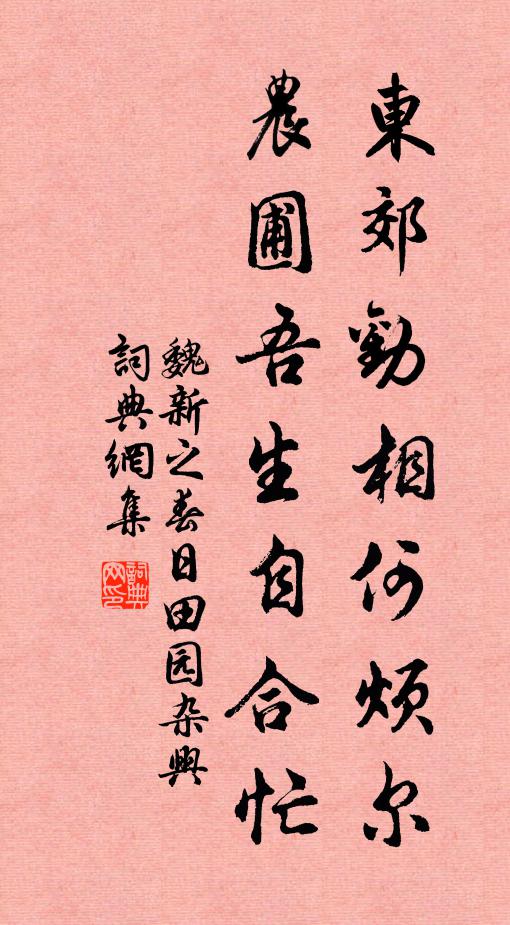 東郊勸相何煩尔
農圃吾生自合忙
魏新之春日田园杂興
詞典網集
詞典網印